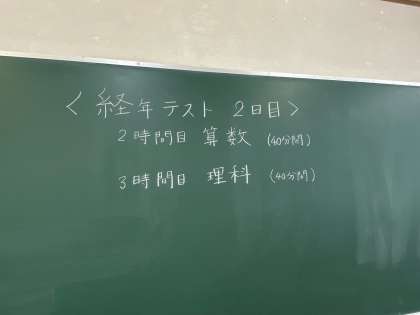 〈経年テスト 2日目〉
2時間目 算数 (40分間)
3時間目 理科 (40分間)